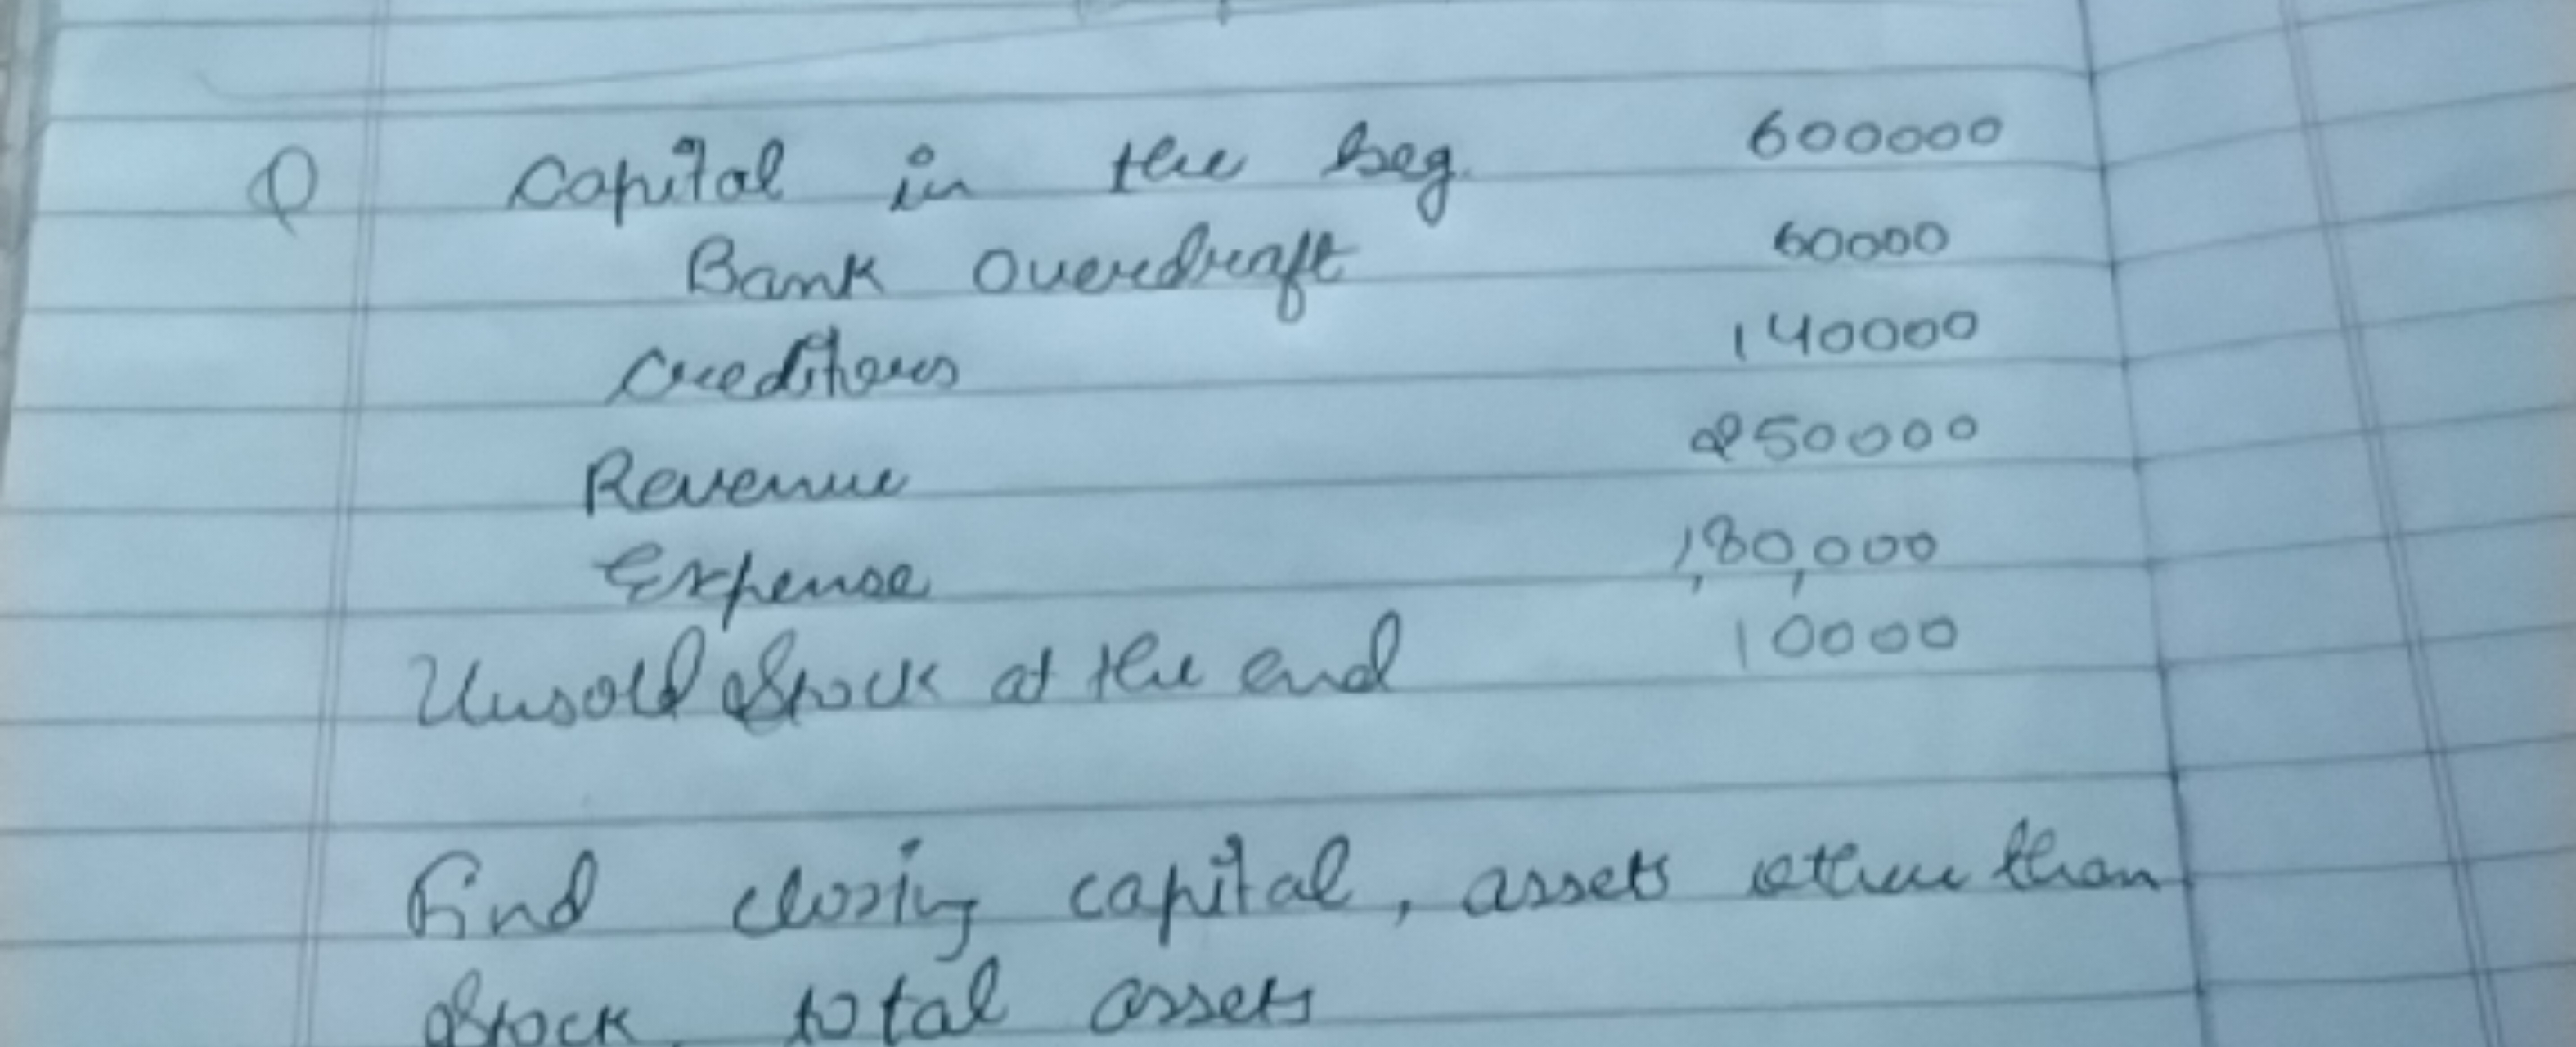 Q Capital in the beg. 600000
Bank Overdraft 60000
Creditors 140000
Revenue 250000
Expense 1,80,000
Unsold Stock at the end 10000
Find closing capital, assets other than
Stock, total assets